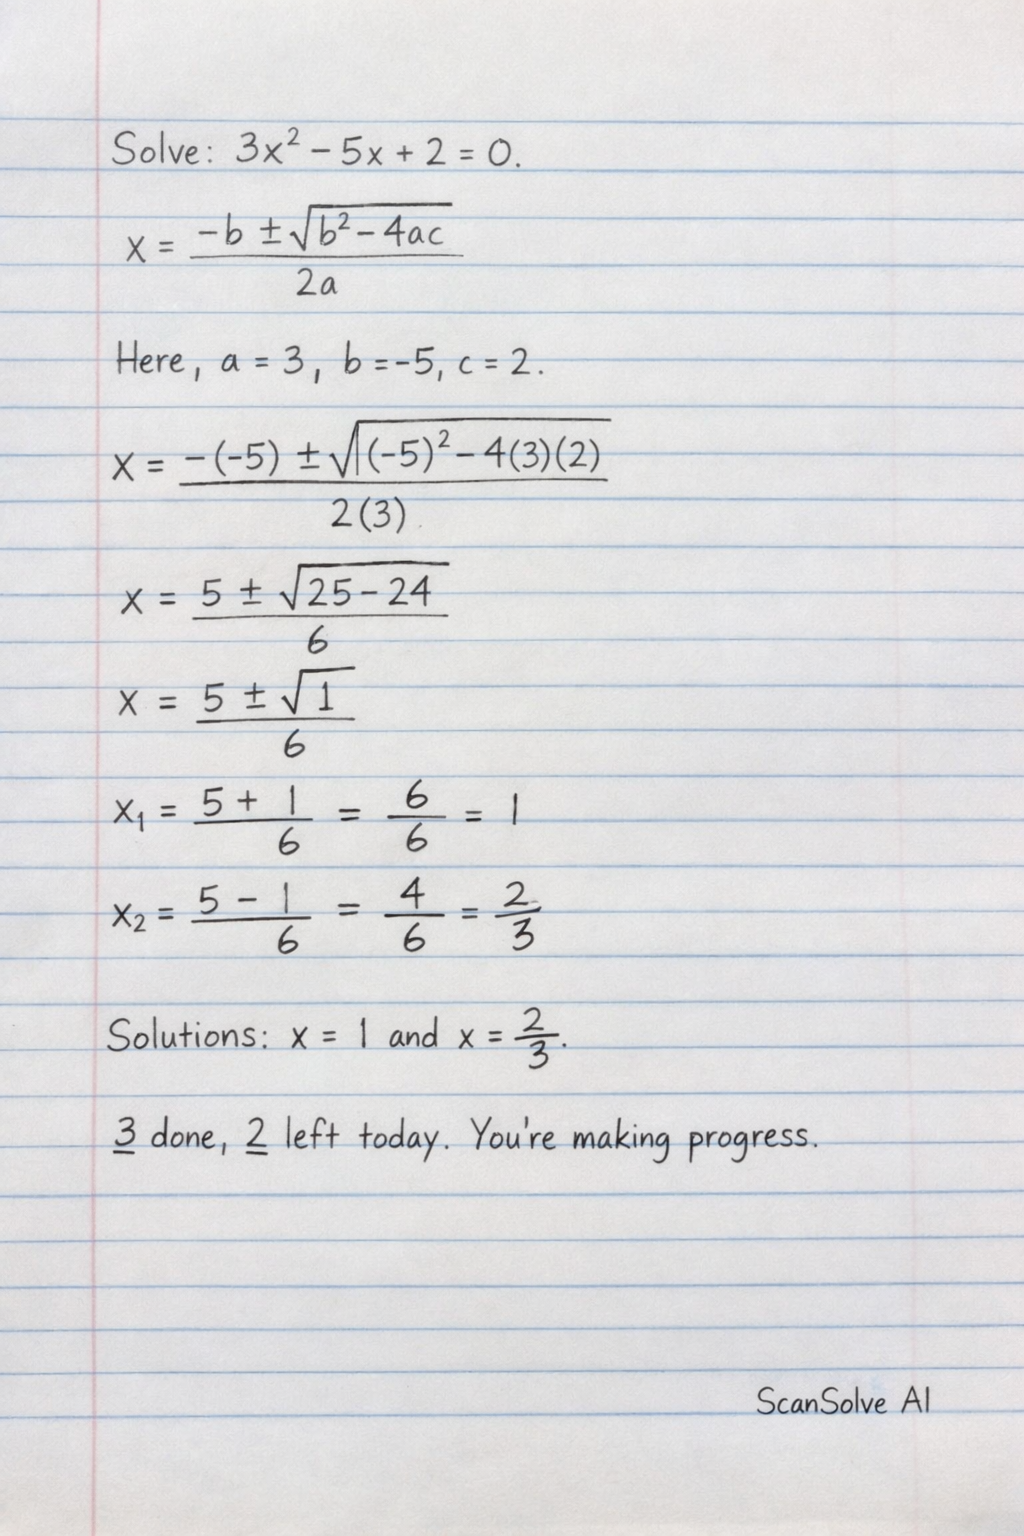 Solve: 3x² − 5x + 2 = 0.
x = (-b ± √(b² − 4ac)) / 2a
Here, a = 3, b = -5, c = 2.
x = (-(-5) ± √((-5)² − 4(3)(2))) / 2(3)
x = (5 ± √(25 − 24)) / 6
x = (5 ± √1) / 6
x₁ = (5 + 1) / 6 = 6/6 = 1
x₂ = (5 − 1) / 6 = 4/6 = 2/3
Solutions: x = 1 and x = 2/3.
3 done, 2 left today. You're making progress.
ScanSolve AI